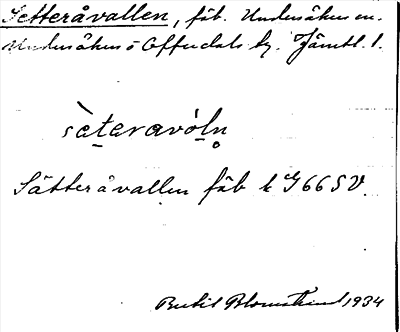 Setteråvallen, fäb. Undersåkers sn.
Undersåkers o Offerdals tg. Jämtl. l.
sὰteravóln̥
Sätteråvallen fäb k G66SV.
Bertil Blomstrand 1934